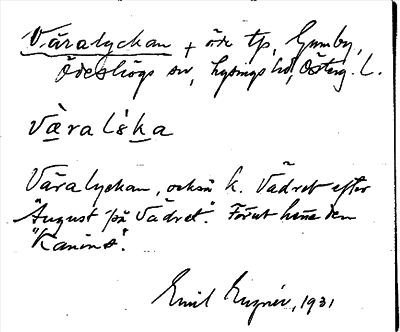 Väralyckan + öde tp, Gumby,
Ödeshögs sn, Lysings hd, Österg. L.
vära ls̀ka
Väralyckan, också k. Vädret efter
"August på Vädret". Förut hette den
"Kanons".
Emil                  , 1931